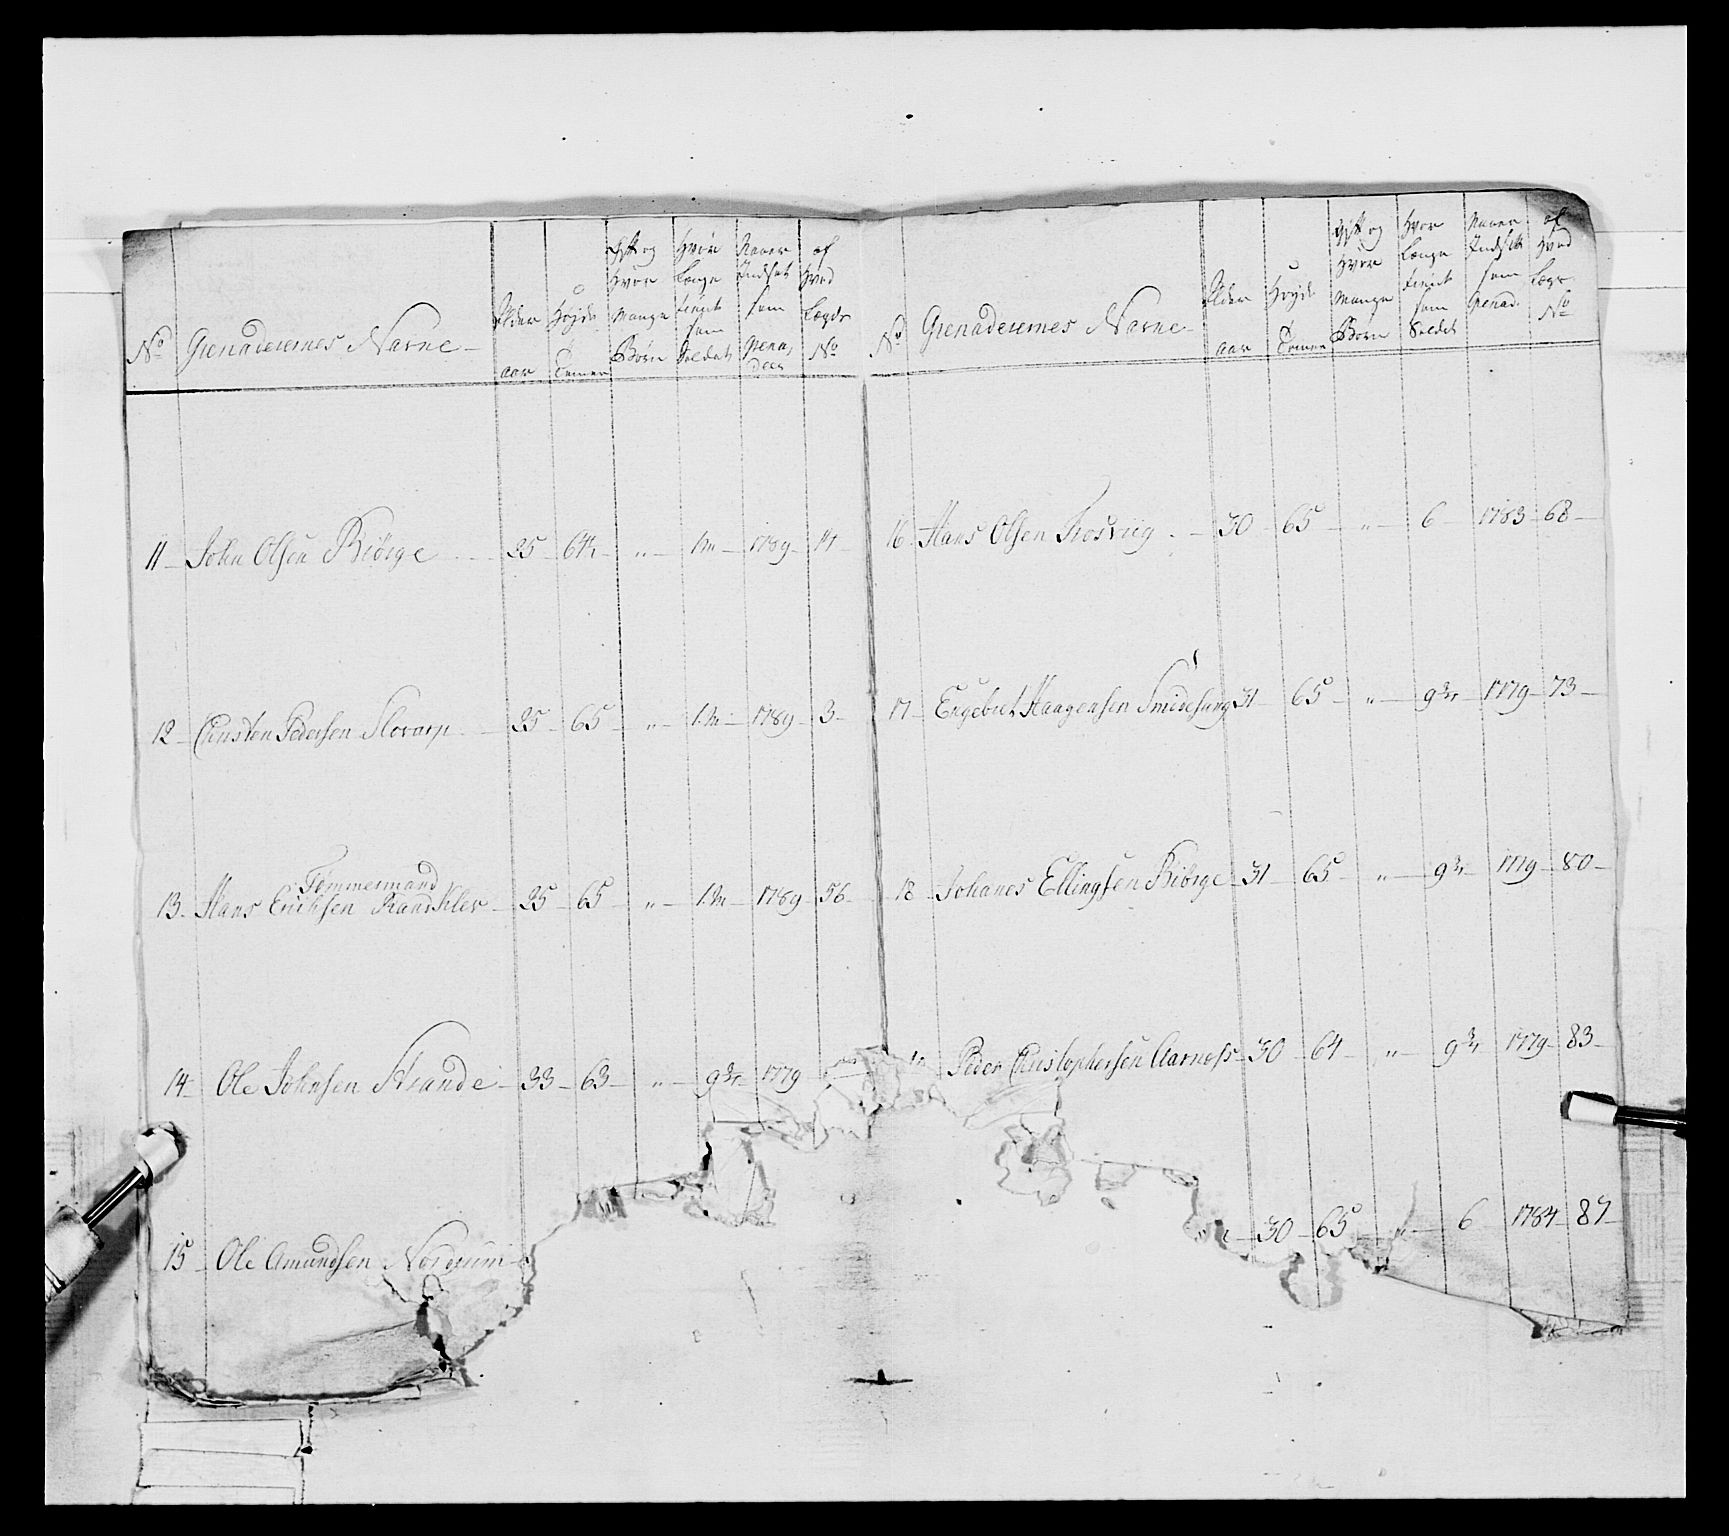 No Grenaderernes Navne Alder aar Høyde Tomer Gift og Hvor Mange Børn Hvor Længe tient som Soldat Naaer Indsat som Grenadeer af Hvad Lægds No
11 John Olsen Biørge 25 64½ " 1 M 1789 14
12 Christen Pedersen Slorarp 25 65 " 1 M 1789 3
Tømmermand
13 Hans Erichsen Raaeskler 25 65 " 1 M 1789 56
14 Ole Johnsen Strande 33 63 " 9 1779
15 Ole Amundsen Noregrim
No Grenaderernes Navne Alder aar Høyde Tomer Gift og Hvor Mange Børn Hvor Længe tient som Soldat Naaer Indsatt som Grenad. af Hvad Lægs No
16 Hans Olsen Kosviig 30 65 " 6 1783 68
17 Engebret Haagensen Smidesang 31 65 " 9 1779 73
18 Johanes Ellingsen Biørge 31 65 " 9 1779 80
Peder Christophersen Aarness 30 64 " 9 1779 83
30 65 " 6 1784 87